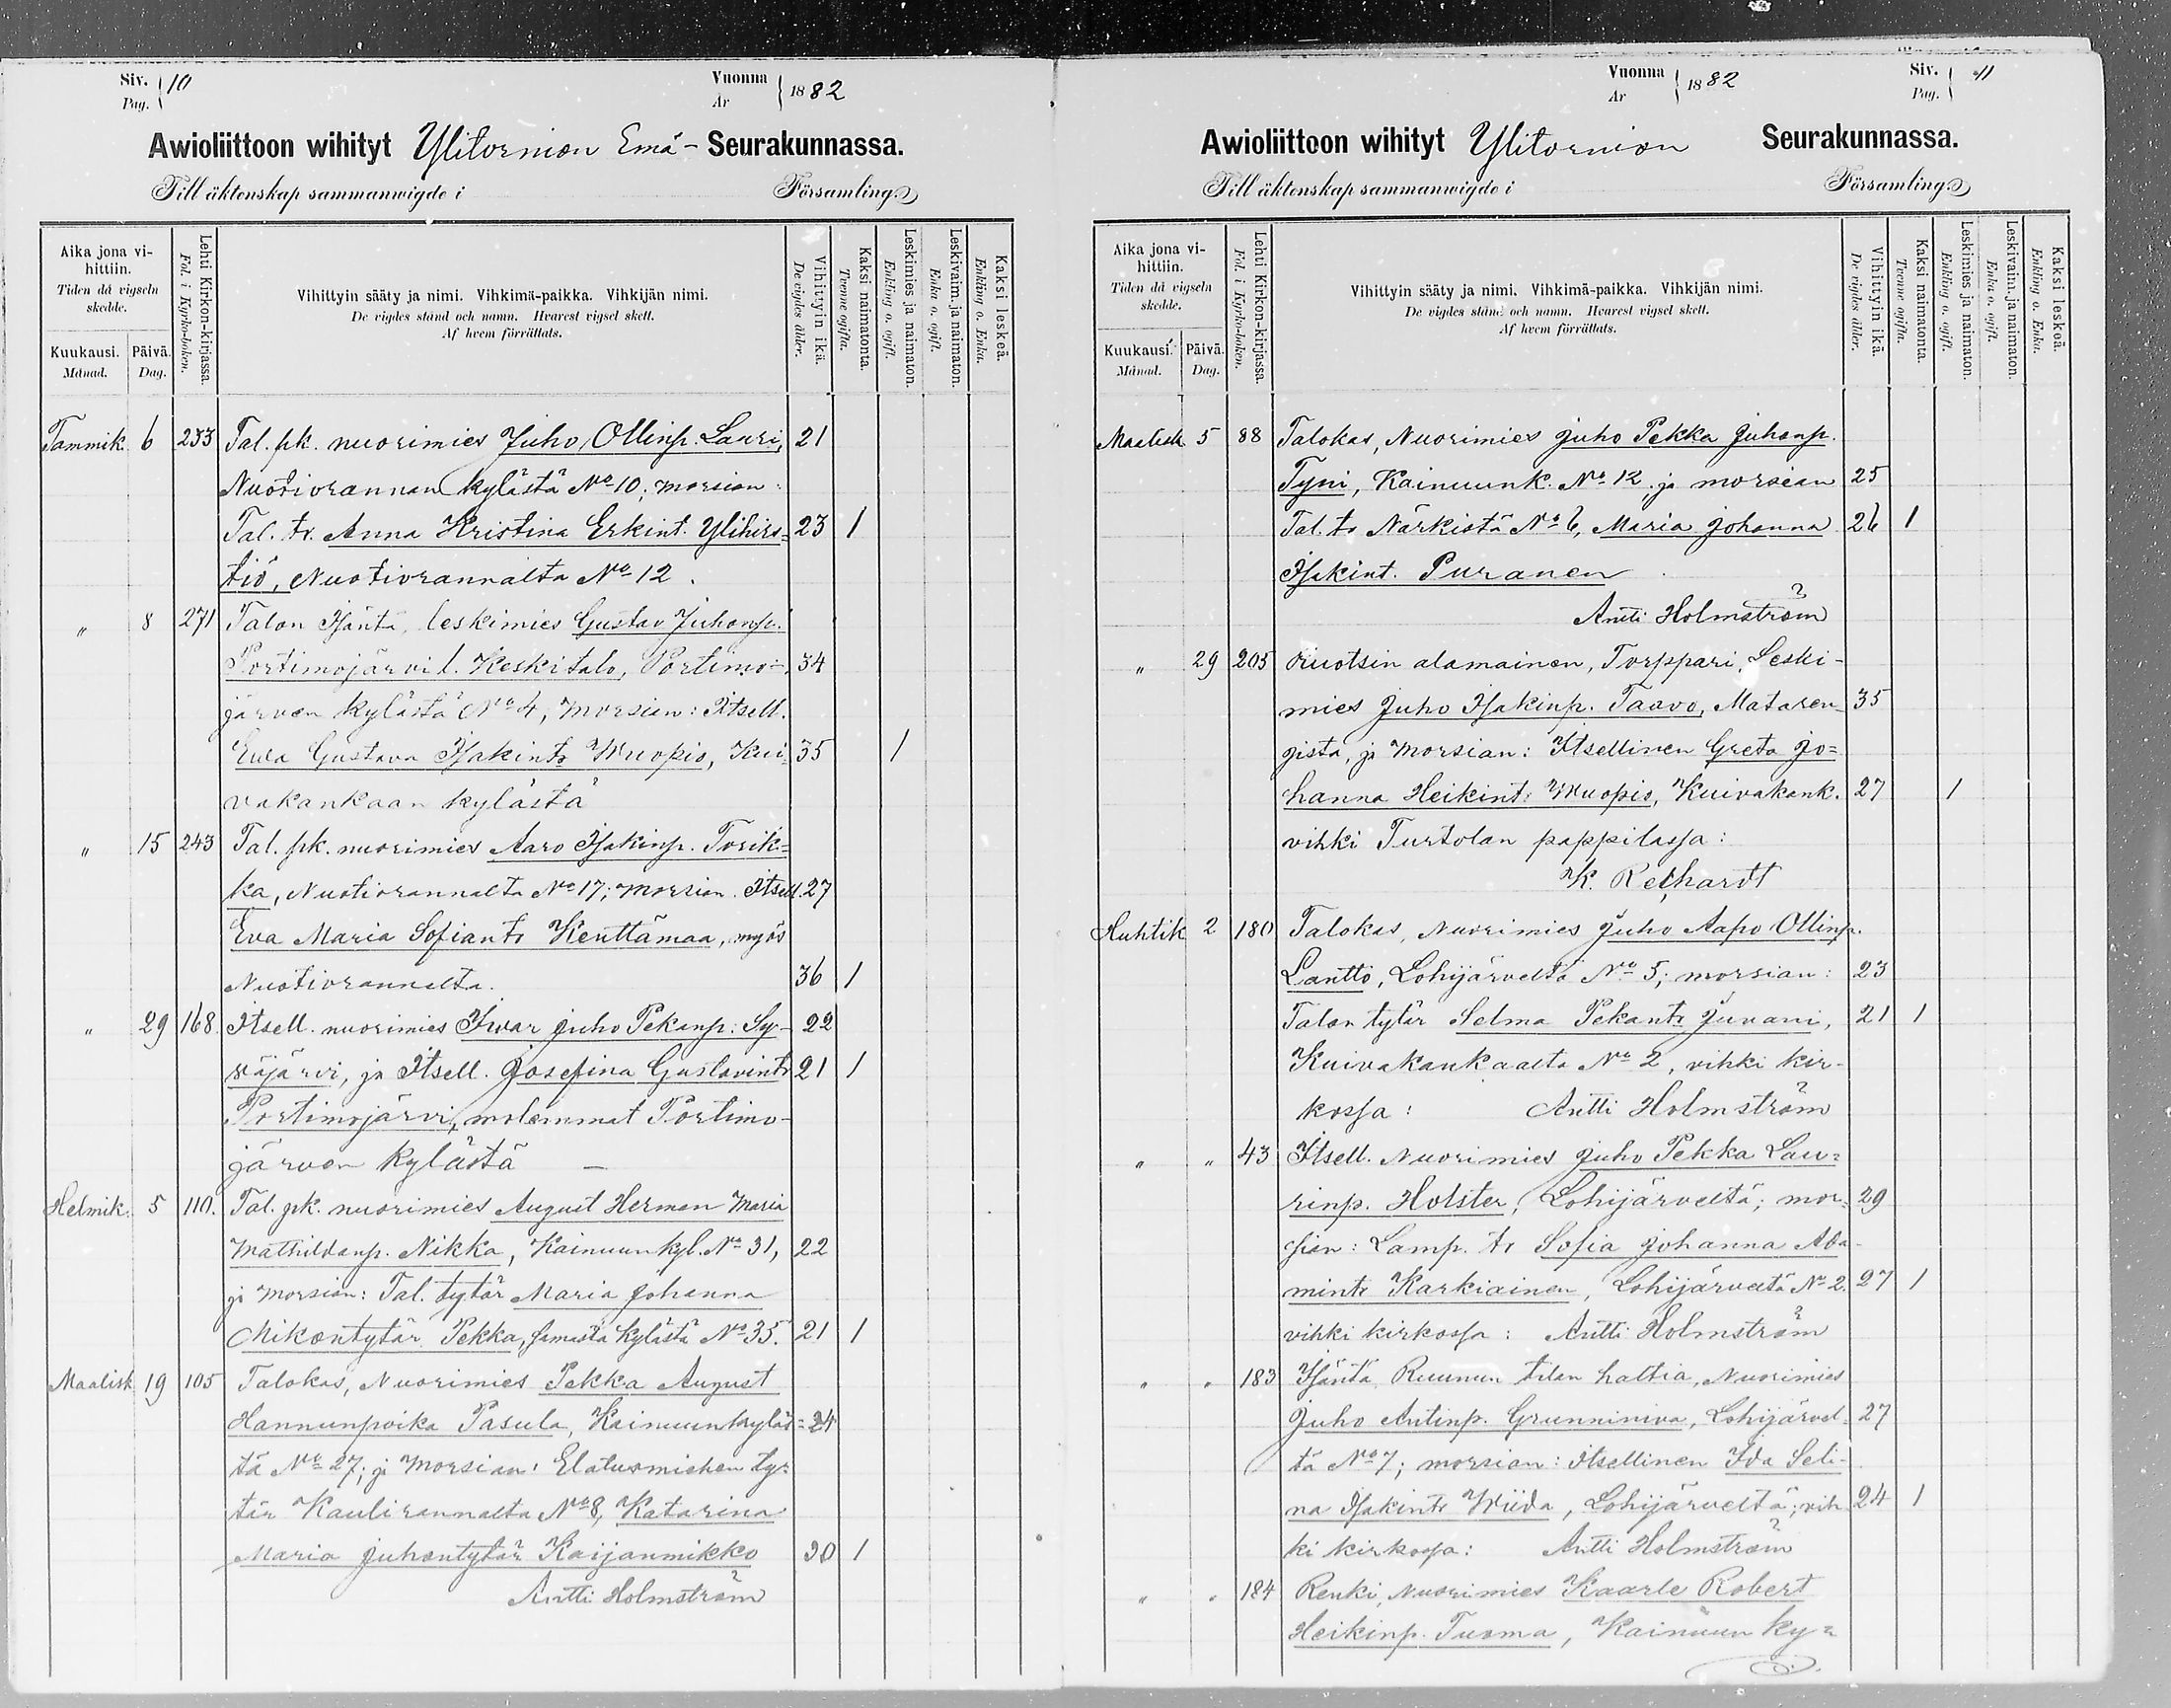 Siv. 10
Pag.
Vuonna 1882
År
Awioliittoon wihityt Ylitornion Emä- Seurakunnassa.
Till äktenskap sammanwigde i Församling.
Aika jona vi-
hittiin.
Tiden då vigseln
skedde.
Kuukausi.
Månad.
Päivä.
Dag.
Lehti Kirkon-kirjassa.
Fol. i Kyrko-boken.
Vihittyin sääty ja nimi. Vihkimä-paikka. Vihkijän nimi.
De vigdes stånd och namn. Hvarest vigsel skett.
Af hvem förrättats.
Vihittyin ikä.
De vigdes ålder.
Kaksi naimatonta.
Tvenne ogifta.
Leskimies ja naimaton.
Enkling o. ogift.
Leskivaim. ja naimaton.
Enka o. ogift.
Kaksi leskeä.
Enkling o. Enka.
Tammik. 6 233 Tal. pk. nuorimies Juho Ollinp. Lauri, 21
Nuotiorannan kylästä No 10; morsian:
Tal. tr. Anna Kristina Erkint. Ylihirs= 23 1
tiö, Nuotiorannalta No 12.
" 8 271 Talon Isäntä, leskimies Gustav Juhonp.
Portimojärvi l. Keskitalo, Portimo= 34
järven kylästä No 4, morsian: Itsell.
Ewa Gustava Isakintr Wuopio, Kui= 35 1
vakankaan kylästä
" 15 243 Tal. pk. nuorimies Aaro Isakinp. Torik=
ka, Nuotiorannalta No 17; morsian. Itsell. 27
Eva Maria Sofiantr Kenttämaa, myös
Nuotiorannalta. 36 1
" 29 168. Itsell. nuorimies Iwar Juho Pekanp: Sy- 22
väjärvi, ja Itsell. Josefina Gustavintr 21 1
Portimojärvi, molemmat Portimo-
järven kylästä —
Helmik. 5 110. Tal. pk. nuorimies August Herman Maria
Mathildanp. Nikka, Kainuunkyl. No 31, 22
ja morsian: Tal. tytär Maria Johanna
Mikontytär Pekka, samasta kylästä No 35. 21 1
Maalisk 19 105 Talokas, Nuorimies Pekka August
Hannunpoika Pasula, Kainuunkyläs= 24
tä No 27; ja Morsian: Elatusmiehen ty-
tär Kaulirannalta No 8, Katarina
Maria Juhontytär Kaijanmikko 30 1
Antti Holmström
Vuonna 1882
År
Siv. 11
Pag.
Awioliittoon wihityt Ylitornion Seurakunnassa.
Till äktenskap sammanwigde i Församling.
Aika jona vi-
hittiin.
Tiden då vigseln
skedde.
Kuukausi.
Månad.
Päivä.
Dag.
Lehti Kirkon-kirjassa.
Fol. i Kyrko-boken.
Vihittyin sääty ja nimi. Vihkimä-paikka. Vihkijän nimi.
De vigdes stånd och namn. Hvarest vigsel skett.
Af hvem förrättats.
Vihittyin ikä.
De vigdes ålder.
Kaksi naimatonta.
Tvenne ogifta.
Leskimies ja naimaton.
Enkling o. ogift.
Leskivaim. ja naimaton.
Enka o. ogift.
Kaksi leskeä.
Enkling o. Enka.
Maalisk 5 88 Talokas, Nuorimies Juho Pekka Juhonp.
Tyni, Kainuunk. No 12 ja morsian 25
Tal. tr Närkistä No 6, Maria Johanna 26 1
Isakint. Puranen
Antti Holmström
" 29 205 Ruotsin alamainen, Torppari, Leski-
mies Juho Isakinp. Taavo, Mataren- 35
gista, ja Morsian: Itsellinen Greta Jo=
hanna Heikintr Wuopio, Kuivakank. 27 1
vihki Turtolan pappilassa:
K. Rechardt
Huhtik 2 180 Talokas, Nuorimies Juho Aapo Ollinp.
Lantto, Lohijärveltä No 5; morsian: 23
Talon tytär Selma Pekantr Juvani, 21 1
Kuivakankaalta No 2, vihki kir-
kossa: Antti Holmström
" " 43 Itsell. Nuorimies Juho Pekka Lau=
rinp. Holster, Lohijärveltä; mor- 29
sian: Lamp. tr Sofia Johanna Ada-
mintr Karkiainen, Lohijärveltä No 2. 27 1
vihki kirkossa: Antti Holmström
" " 183 Isäntä, Ruunun tilan haltia, Nuorimies
Juho Antinp. Grunniniva, Lohijärvel= 27
tä No 7; morsian: Itsellinen Ida Seli-
na Isakintr Wiida, Lohijärveltä; vih- 24 1
ki kirkossa: Antti Holmström
" " 184 Renki, Nuorimies Kaarle Robert
Heikinp. Tuoma, Kainuun ky=